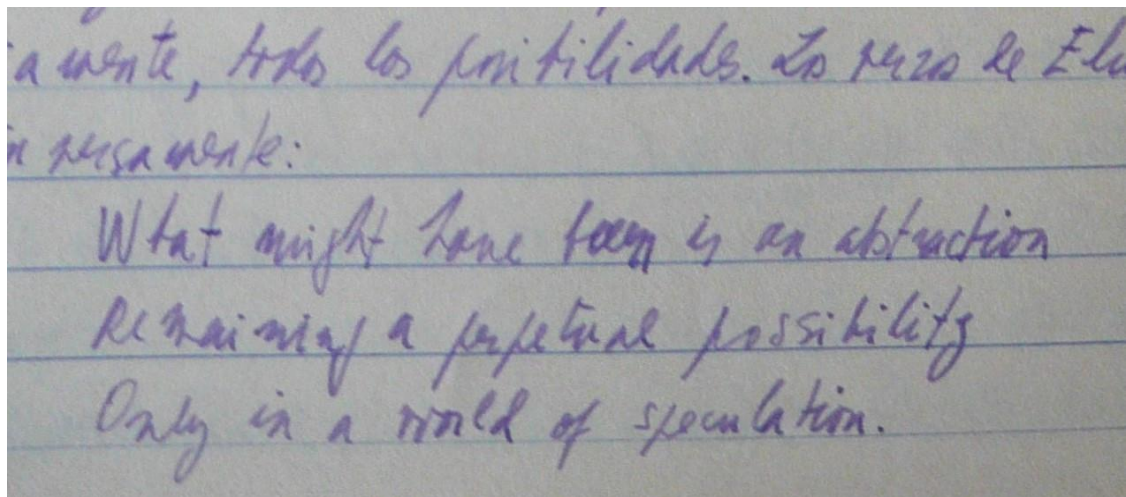 amente, todas las posibilidades. Los versos de
What might have been is an abstraction
Remaining a perpetual possibility
Only in a world of speculation.